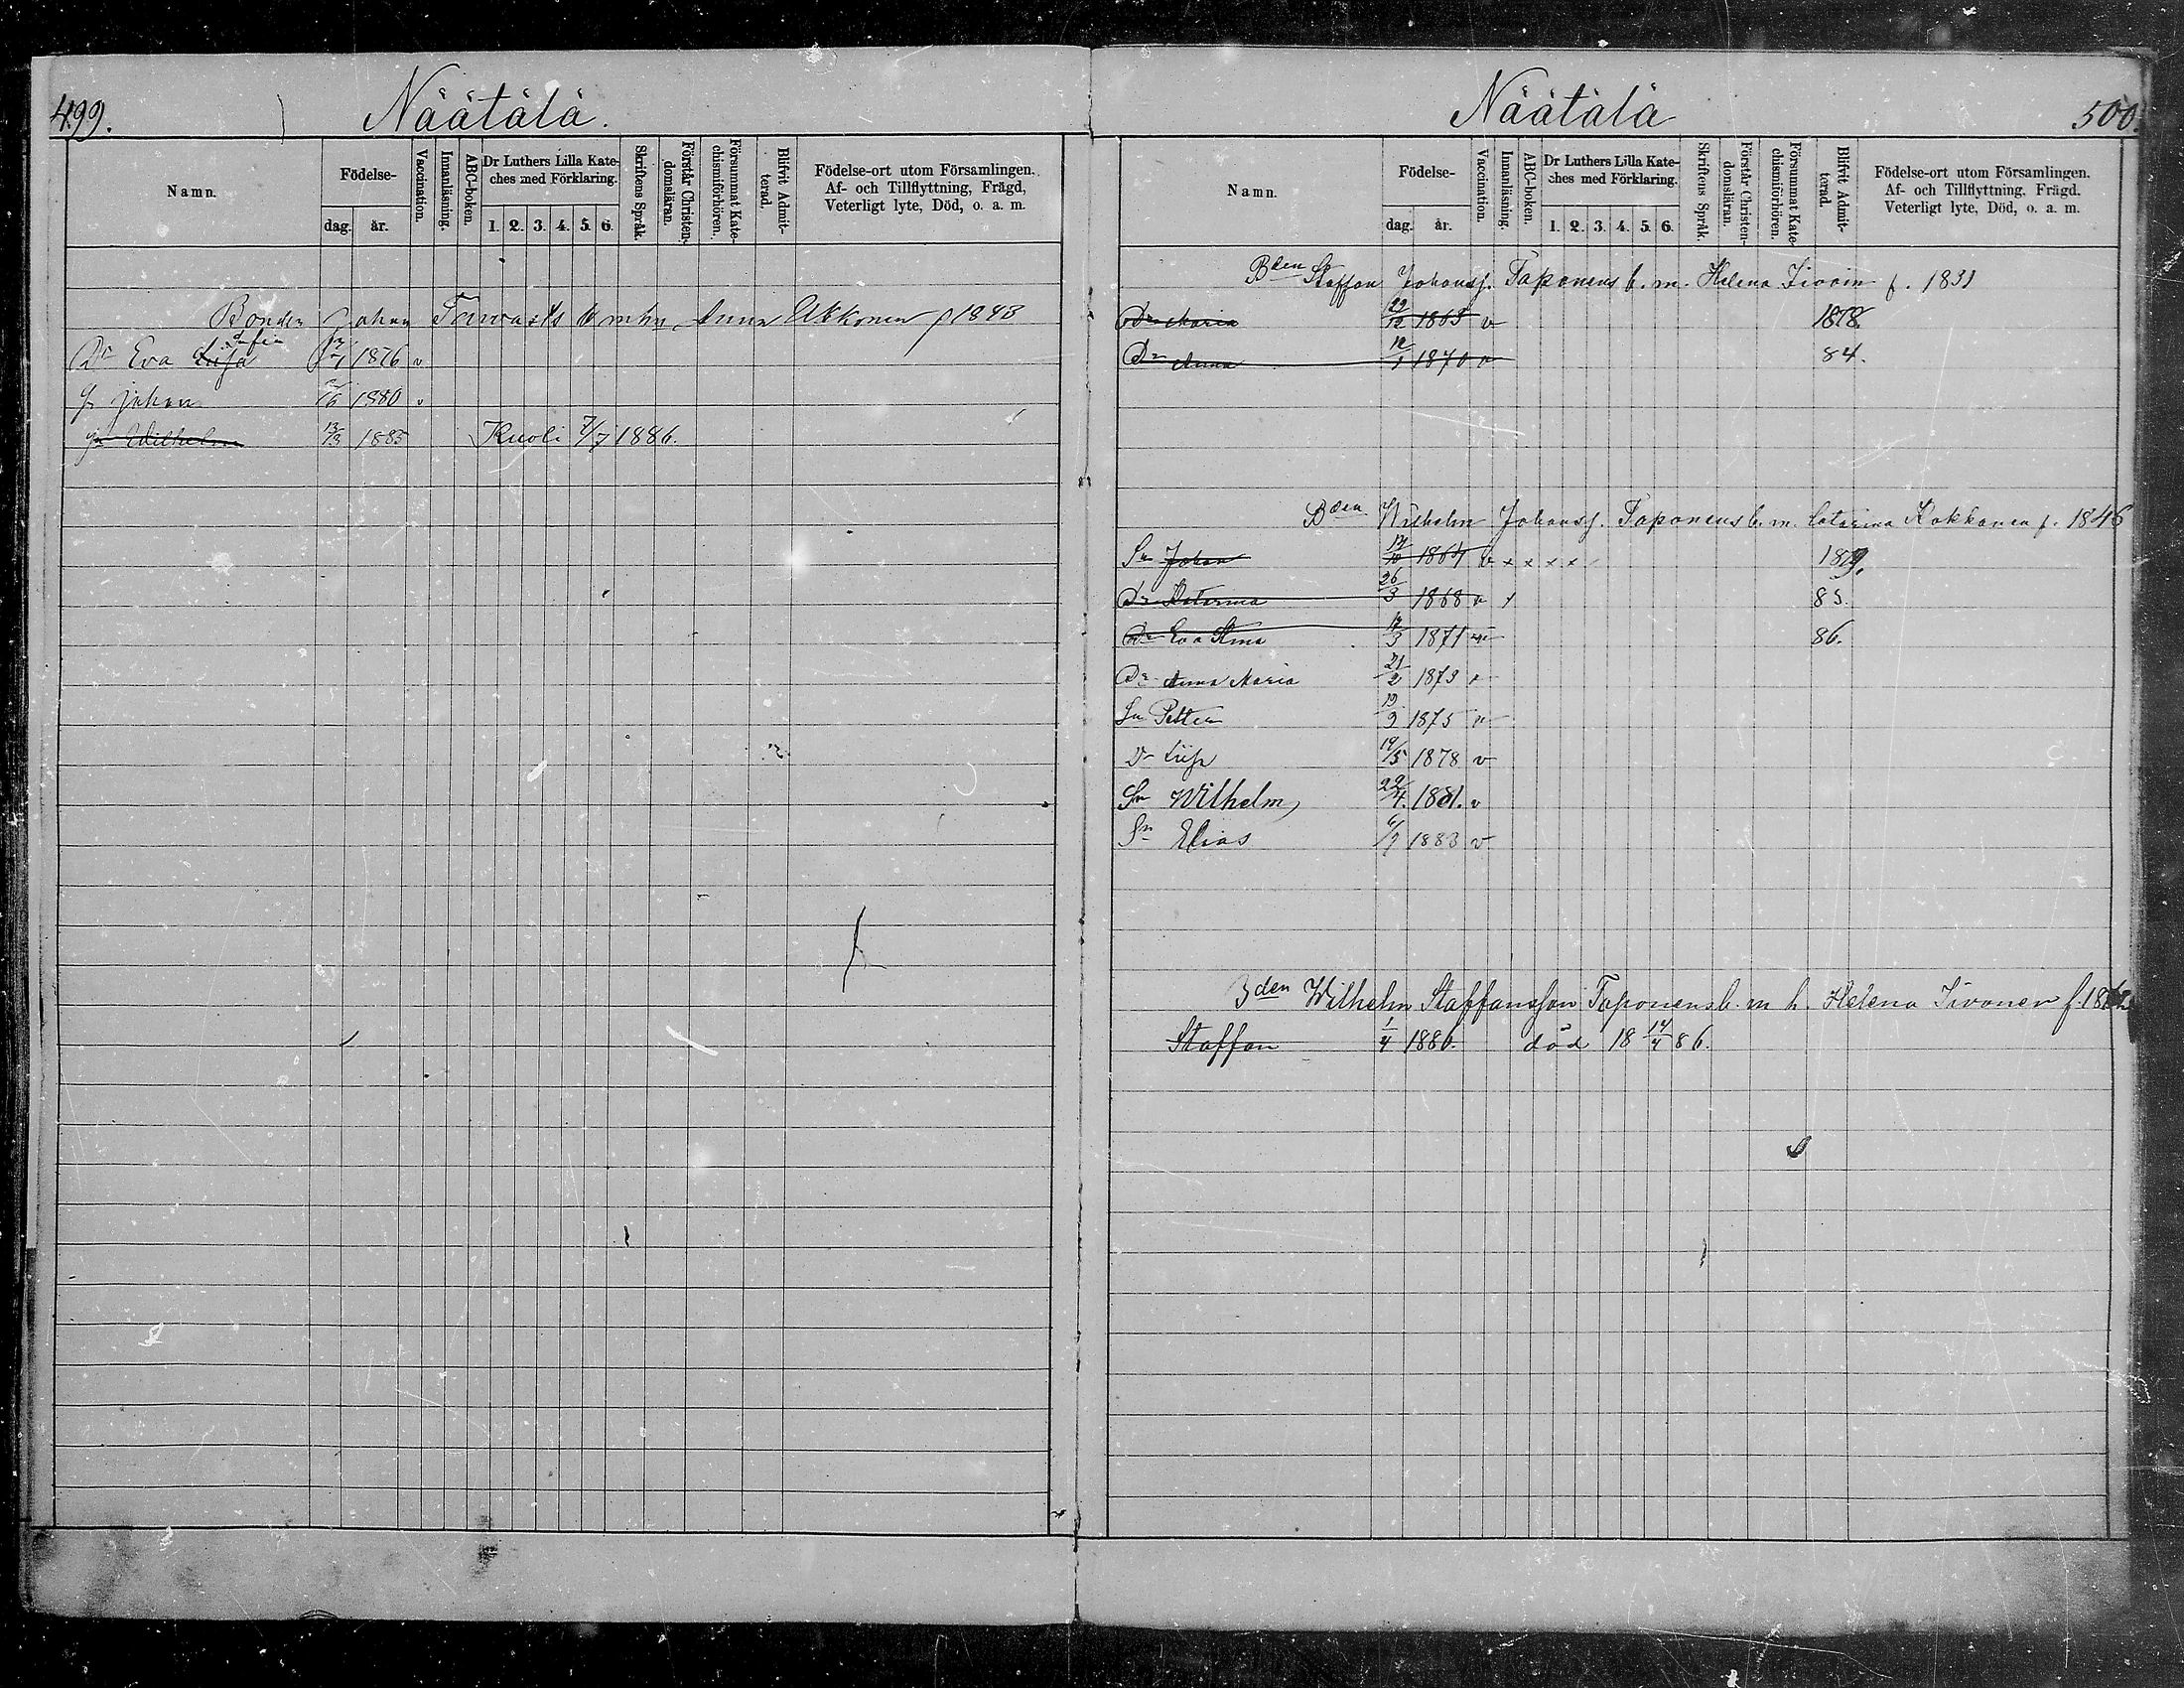 499.
Näätälä.
Namn.
Födelse-
dag. år.
Vaccination.
Innanläsning.
ABC-boken.
Dr Luthers Lilla Kate-
ches med Förklaring.
1. 2. 3. 4. 5. 6.
Skriftens Språk.
Förstår Christen-
domsläran.
Försummat Kate-
chismiförhören.
Blifvit Admit-
terad.
Födelse-ort utom Församlingen.
Af- och Tillflyttning, Frägd,
Veterligt lyte, Död, o. a. m.
Bonden Johan Anna Ukkonen f 1843
Dr Eva 1876 v
Johan 1880 v
Wilhelm 13/3 1885 Kuoli 7/7 1886.
Näätälä
500.
Namn.
Födelse-
dag. år.
Vaccination.
Innanläsning.
ABC-boken.
Dr Luthers Lilla Kate-
ches med Förklaring.
1. 2. 3. 4. 5. 6.
Skriftens Språk.
Förstår Christen-
domsläran.
Försummat Kate-
chismiförhören.
Blifvit Admit-
terad.
Födelse-ort utom Församlingen.
Af- och Tillflyttning, Frägd.
Veterligt lyte, Död, o. a. m.
Bden Staffan Johanss. Taponens b. m. Helena f. 1831
Dr Maria 22/12 1863 v 1878.
Dr Anna 12/1 1870 v 84.
Bden Wilhelm Johanss. Taponens b. m. Catarina Kokkonen f. 1846
Sn Johan 1864 v x x x x
Dr Katarina 26/3 1868 v 85.
Dr Eva Stina 17/3 1871 v 86.
Dr Anna Maria 21/2 1873 v
Sn Petter 19/9 1875 v
Dr Liisa 19/5 1878 v
Sn Wilhelm 22/4. 1881. v
Sn Elias 1883 v
Bden Wilhelm Staffansson Taponens b. m h. Helena Iivonen
Staffan 1/4 1886. död 18 14/4 86.